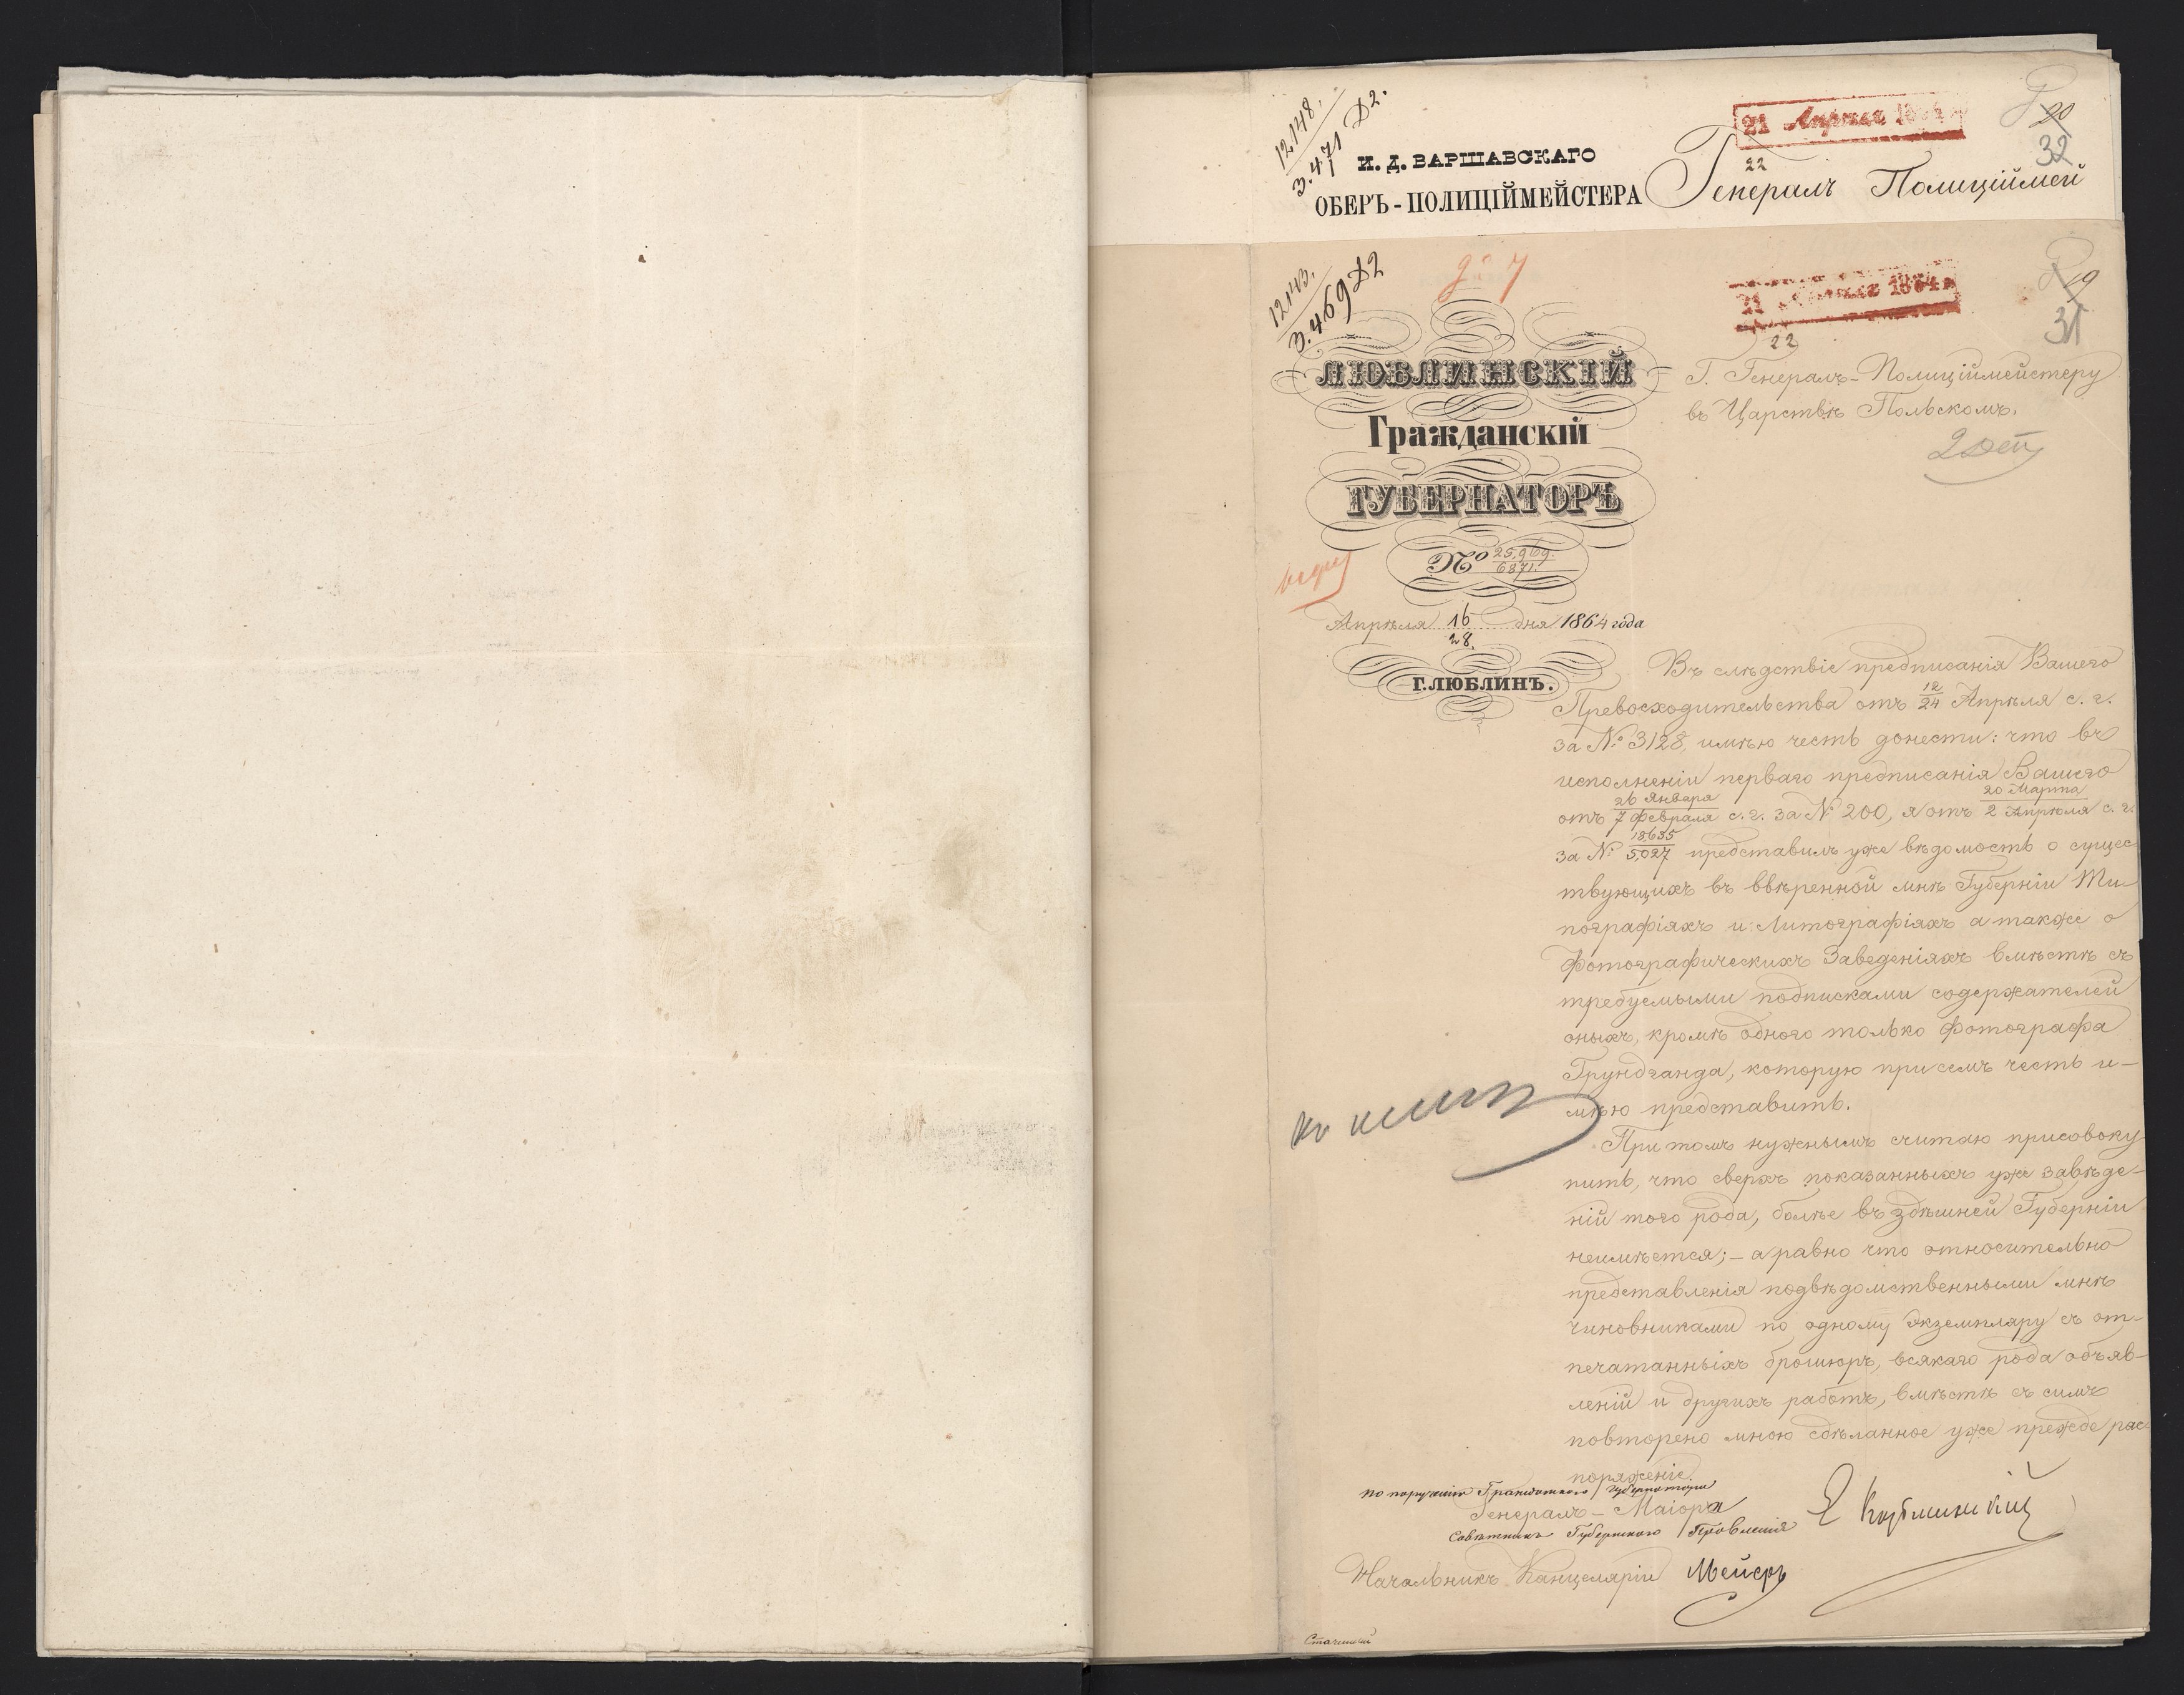 12148.
3.471 Д2.
И. Д. ВАРШАВСКАГО
ОБЕРЪ-ПОЛИЦІЙМЕЙСТЕРА
21 Апрѣля
22
20
32
Генералъ Полиціймей
12143.
3.469 Д2
21 1864
22
19
31
ЛЮБЛИНСКІЙ
Гражданскій
ГУБЕРНАТОРЪ
№ 25,969.
6871.
Апрѣля 16 дня 1864 года
28.
Г. ЛЮБЛИНЪ.
Г. Генералъ-Полиціймейстеру
въ Царствѣ Польскомъ.
Въ слѣдствіе предписанія Вашего
Превосходительства отъ 12/24 Апрѣля с. г.
за № 3128, имѣю честь донести: что въ
исполненіи перваго предписанія Вашего
отъ 26 Января/7 Февраля с. г. за № 200, я отъ 20 Марта/2 Апрѣля с. г.
за № 18635/5,027 представилъ уже вѣдомость о сущес
твующихъ въ ввѣренной мнѣ Губерніи Ти-
пографіяхъ и Литографіяхъ а также о
Фотографическихъ Заведеніяхъ вмѣстѣ съ
требуемыми подписками содержателей
оныхъ, кромѣ одного только фотографа
Грундганда, которую при семъ честь и-
мѣю представить.
При томъ нужнымъ считаю присовоку
пить, что сверхъ показанныхъ уже завѣде-
ній того рода, болѣе въ здѣшней Губерніи
неимѣется; - а равно что относительно
представленія подвѣдомственными мнѣ
чиновниками по одному экземпляру съ от-
печатанныхъ брошюръ, всякаго рода объяв-
леній и другихъ работъ, вмѣстѣ съ симъ
повторено мною сдѣланное уже прежде рас
поряженіе.
по порученію Гражданскаго Губернатора
Генералъ-Маіора
Совѣтникъ Губернскаго Правленія
Начальникъ Канцеляріи Мейеръ